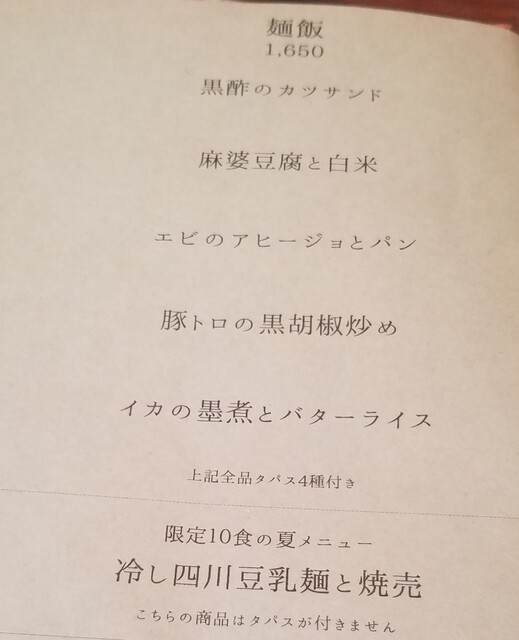 麺飯
1,650
黒酢のカツサンド
麻婆豆腐と白米
エビのアヒージョとパン
豚トロの黒胡椒炒め
イカの墨煮とバターライス
上記全品タパス4種付き
限定10食の夏メニュー
冷し四川豆乳麺と焼売
こちらの商品はタパスが付きません